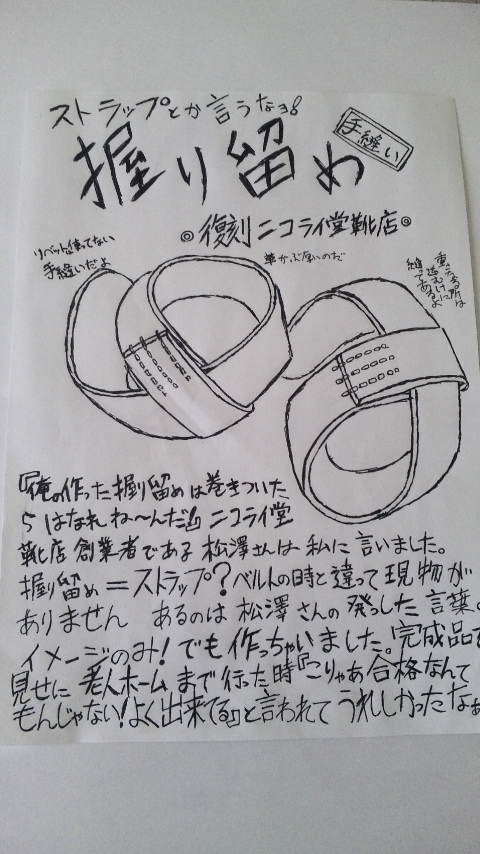 ストラップとか言うなヨ!
握り留め
手縫い
◎復刻ニコライ堂靴店◎
リベットは使ってない
手縫いだよ
革がぶ厚いのだ
縫ってあるよ
『俺の作った握り留めは巻きついた
らはなれね〜んだ!』ニコライ堂
靴店創業者である松澤さんは私に言いました。
握り留め=ストラップ?ベルトの時と違って現物が
ありません あるのは松澤さんの発した言葉。
イメージのみ!でも作っちゃいました。完成品を
見せに老人ホームまで行った時『こりゃあ合格なんて
もんじゃない!よく出来てる』と言われてうれしかったなぁ